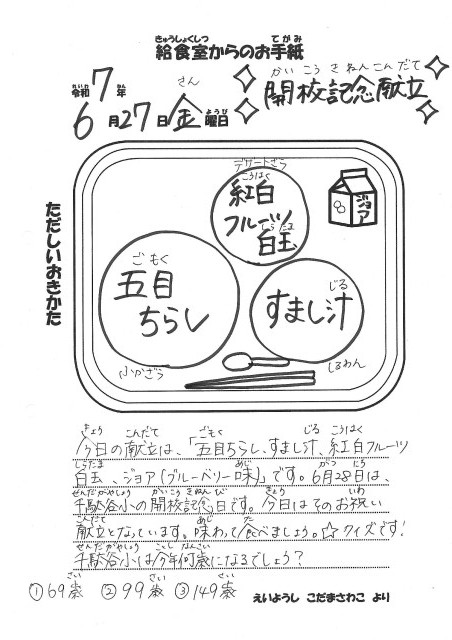 きゅうしょくしつ てがみ
給食室からのお手紙
れいわ ねん
令和7年
さん ようび
6月27日金曜日
かいこうきねんこんだて
開校記念献立
ただしいおきかた
デザートざら
こうはく
紅白
フルーツ
しらたま
白玉
ジョア
ごもく
五目
ちらし
じる
すまし汁
ふかざら
しるわん
きょう こんだて ごもく じる こうはく
今日の献立は、「五目ちらし、すまし汁、紅白フルーツ
しらたま あじ がつ にち
白玉、ジョア(ブルーベリー味)」です。6月28日は、
せんだがやしょう かいこうきねんび きょう いわ
千駄谷小の開校記念日です。今日はそのお祝い
こんだて あじ た
献立となっています。味わって食べましょう。☆クイズです!
せんだがやしょう ことし なんさい
千駄谷小は今年何歳になるでしょう?
さい さい さい
①69歳 ②99歳 ③149歳
えいようし こだまさわこ より